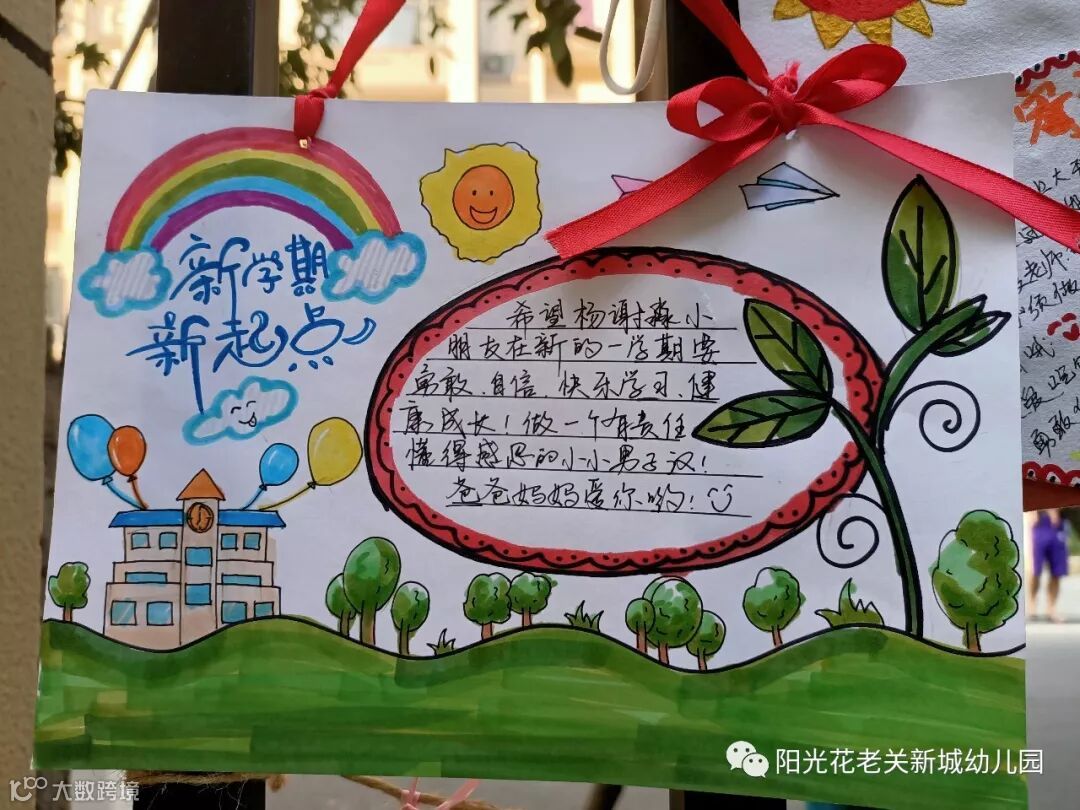 新学期
新起点
希望杨谢淼小
朋友在新的一学期要
勇敢、自信、快乐学习、健
康成长！做一个有责任
懂得感恩的小小男子汉！
爸爸妈妈爱你哟！
爱
老师
哦
勇敢
阳光花老关新城幼儿园
大数跨境